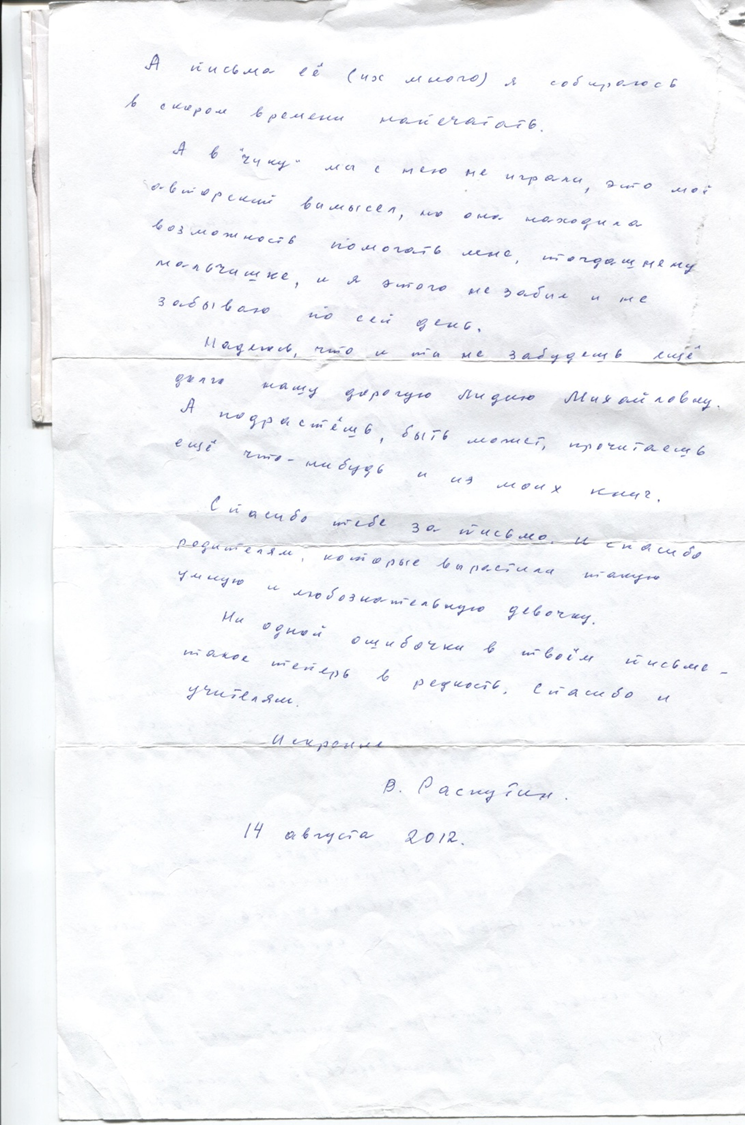 А письма её (их много) я собираюсь
в скором времени напечатать.
А в "чику" мы с нею не играли, это мой
авторский вымысел, но она находила
возможность помогать мне, тогдашнему
мальчишке, и я этого не забыл и не
забываю по сей день.
Надеюсь, что и ты не забудешь ещё
долго нашу дорогую Лидию Михайловну.
А подрастёшь, быть может, прочитаешь
ещё что-нибудь и из моих книг.
Спасибо тебе за письмо. И спасибо
родителям, которые вырастили такую
умную и любознательную девочку.
Ни одной ошибочки в твоём письме -
такое теперь в редкость. Спасибо и
учителям.
Искренне
В. Распутин.
14 августа 2012.